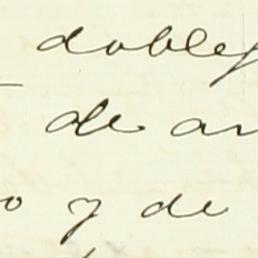 doble
de
y de